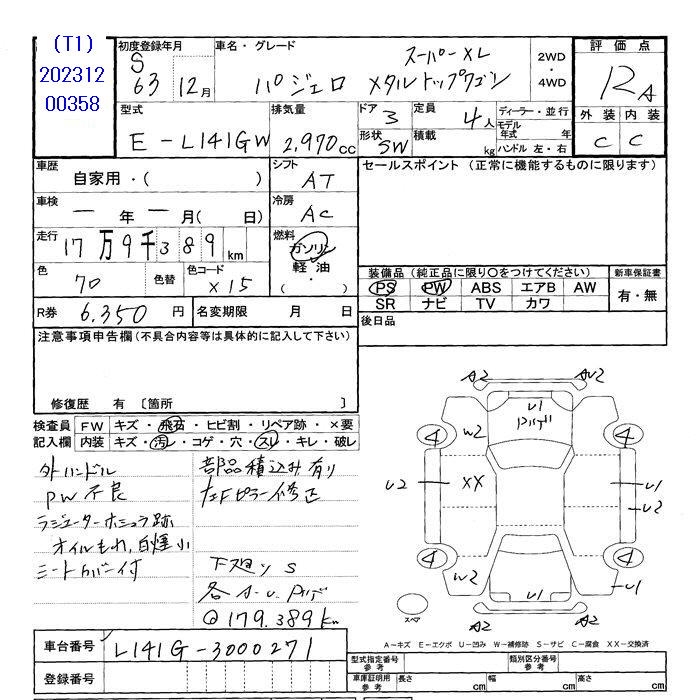 (T1)
202312
00358
初度登録年月
S
63 12月
車名・グレード
パジェロ
スーパーXL
メタルトップワゴン
2WD
・
4WD
評価点
RA
外装 内装
C C
型式
E-L141GW
排気量
2,970cc
ドア
3
形状
SW
定員
4人
積載
kg
ディーラー・並行
モデル
年式 年
ハンドル 左・右
車歴
自家用・( )
シフト
AT
セールスポイント(正常に機能するものに限ります)
車検
ー年ー月( 日)
冷房
AC
走行
17万9千389km
燃料
ガソリン
軽油
( ・ )
色
70
色替
色コード
X15
装備品(純正品に限り○をつけてください)
PS PW ABS エアB AW
SR ナビ TV カワ
新車保証書
有・無
R券 6,350円
名変期限 月 日
後日品
注意事項申告欄(不具合内容等は具体的に記入して下さい)
修復歴 有 〔箇所 〕
検査員 FW キズ・飛石・ヒビ割・リペア跡・×要
記入欄 内装 キズ・汚レ・コゲ・穴・スレ・キレ・破レ
外ハンドル
PW不良
ラジエーターホシュウ跡
オイルもれ,白煙小
シートカバー付
部品積込み有り
左Fピラー修正
下廻りS
各A・U.Pハゲ
@179.389km
A2 A2
U1
Pハゲ
4 W2 4
U2 XX U1
U2
4 W2 4
U1 U1
A2 A2
スペア
A〜キズ E〜エクボ U〜凹み W〜補修跡 S〜サビ C〜腐食 XX〜交換済
車台番号 L141G-3000271
登録番号
型式指定番号
参考
類別区分番号
参考
車庫証明用
参考
長さ cm 幅 cm 高さ cm